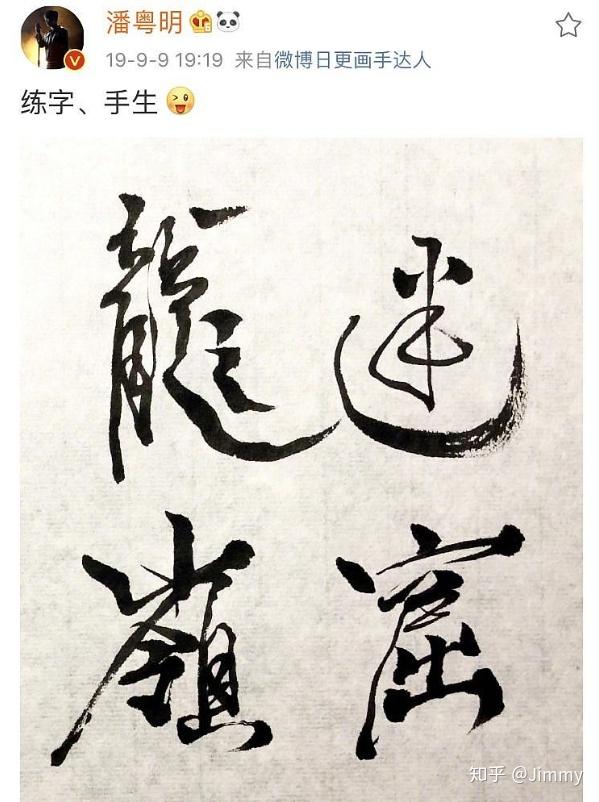 潘粤明
19-9-9 19:19 来自微博日更画手达人
练字、手生
龍嶺
迷窟
知乎 @Jimmy